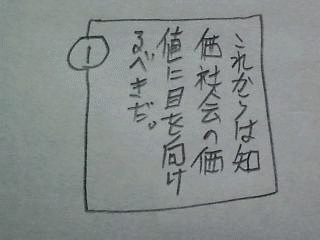 これからは知
価社会の価
値に目を向け
るべきだ。
1